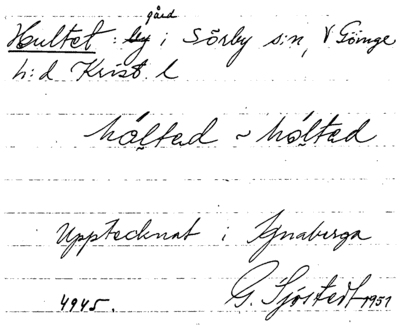 gård
Hultet : by i Sörby s:n, V Göinge
h:d Krist. l
hólted ~ hóltad
Upptecknat i Ignaberga
4945. G. Sjöstedt 1951